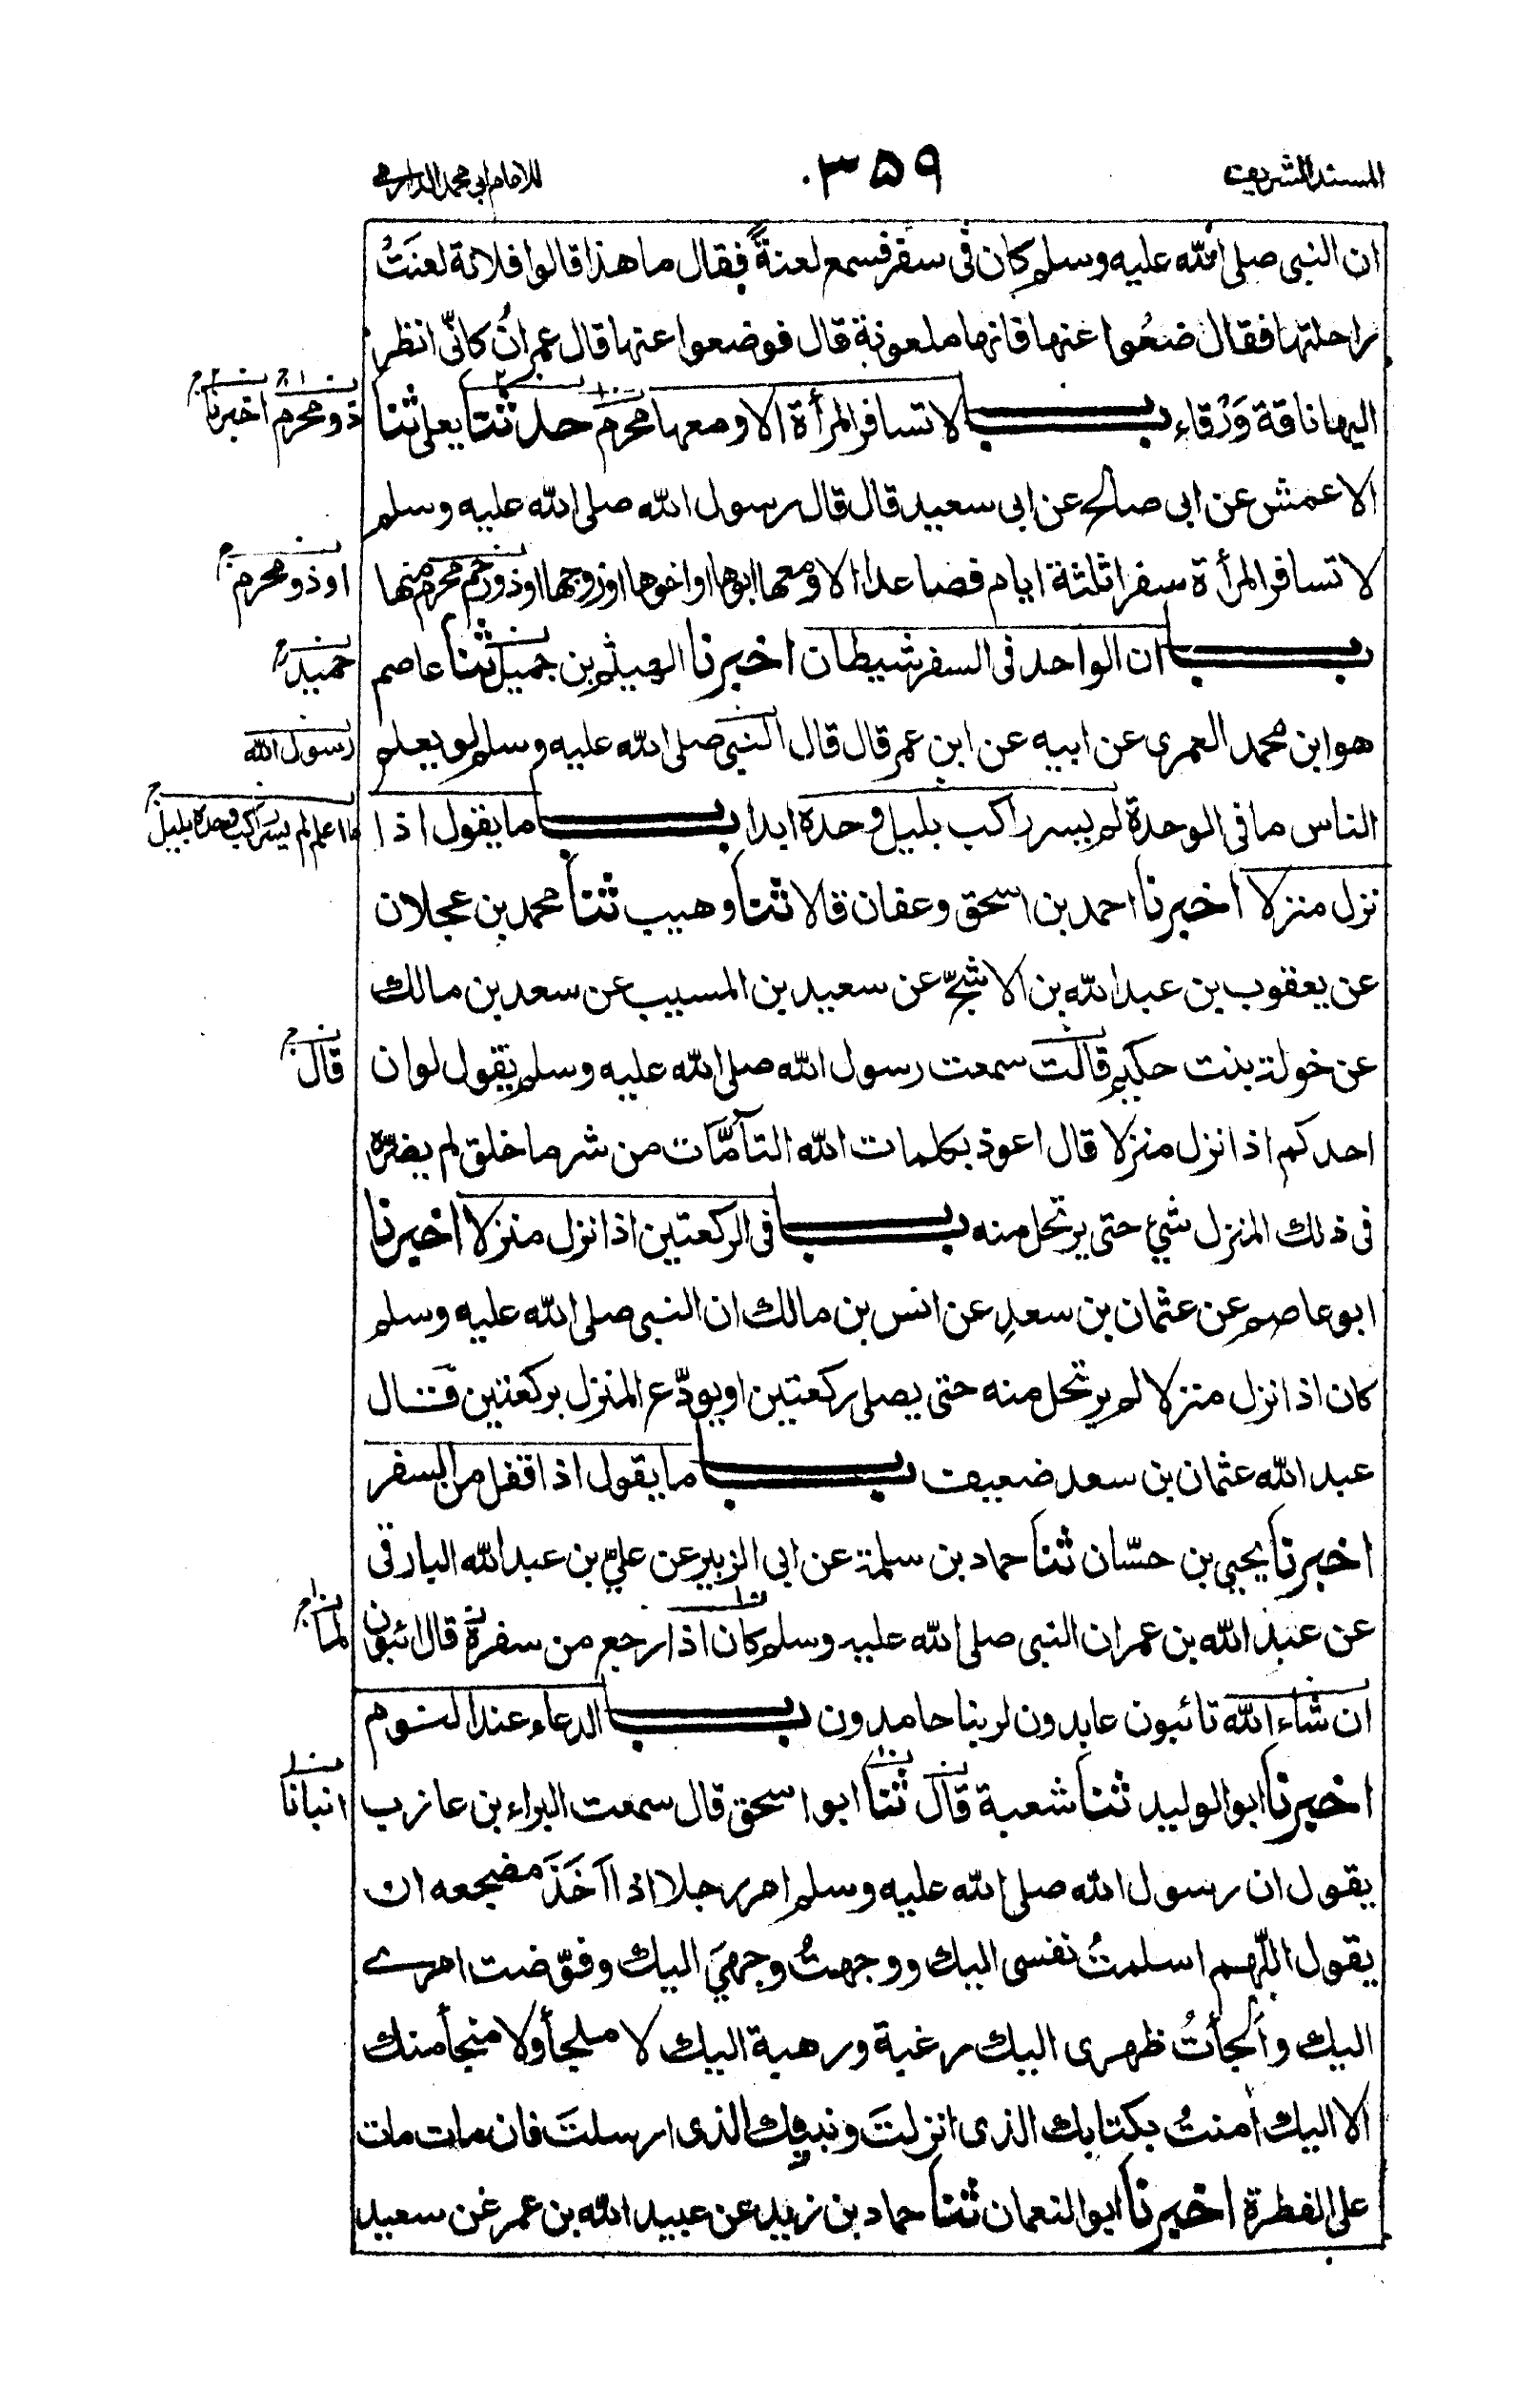 المسند الشريف
۳۵۹
للامام ابي محمد الدارمي
ان النبى صلى الله عليه وسلم كان فى سفر فسمع لعنةً فقال ما هذا قالوا فلانة لعنَتْ
راحلتها فقال ضعُوا عنها فانها ملعونة قال فوضعوا عنها قال عمرانُ كانّى انظر
اليها ناقة وَرْقاء باب لا تسافر المرأة الا ومعها محرم حدثنا يعلى ثنا
ذو محرم اخبرنا
الاعمش عن ابى صالح عن ابى سعيد قال قال رسول الله صلى الله عليه وسلم
لا تسافر المرأة سفرا ثلثة ايام فصاعدا الا ومعها ابوها او اخوها او زوجها او ذو رحم محرم منها
او ذو محرم
باب ان الواحد فى السفر شيطان اخبرنا الهيثم بن جميل ثنا عاصم
حميد
هو ابن محمد العمرى عن ابيه عن ابن عمر قال قال النبى صلى الله عليه وسلم لو يعلم
رسول الله
الناس ما فى الوحدة لم يسر راكب بليل وحدة ابدا باب ما يقول اذا
ما اعلم لم يسر راكب وحدة بليل
نزل منزلا اخبرنا احمد بن اسحق وعفان قالا ثنا وهيب ثنا محمد بن عجلان
عن يعقوب بن عبد الله بن الاشجّ عن سعيد بن المسيب عن سعد بن مالك
عن خولة بنت حكيم قالت سمعت رسول الله صلى الله عليه وسلم يقول لو ان
قال
احدكم اذا نزل منزلا قال اعوذ بكلمات الله التآمّات من شر ما خلق لم يضرّه
فى ذلك المنزل شئ حتى يرتحل منه باب فى الركعتين اذا نزل منزلا اخبرنا
ابو عاصم عن عثمان بن سعدٍ عن انس بن مالك ان النبى صلى الله عليه وسلم
كان اذا نزل منزلا لم يرتحل منه حتى يصلى ركعتين او يودّع المنزل بركعتين قال
عبد الله عثمان بن سعد ضعيف باب ما يقول اذا قفل من السفر
اخبرنا يحيى بن حسّان ثنا حماد بن سلمة عن ابى الزبير عن علىّ بن عبد الله البارقى
عن عبد الله بن عمر ان النبى صلى الله عليه وسلم كان اذا رجع من سفرة قال ائبون
لما
ان شاء الله تائبون عابدون لربنا حامدون باب الدعاء عند النوم
اخبرنا ابو الوليد ثنا شعبة قال ثنا ابو اسحق قال سمعت البراء بن عازب
انبانا
يقول ان رسول الله صلى الله عليه وسلم امر رجلا اذا اَخَذَ مضجعه ان
يقول اللّهم اسلمتُ نفسى اليك ووجهتُ وجهىَ اليك وفوّضت امرى
اليك وأَلجأتُ ظهرى اليك رغبة ورهبة اليك لا ملجأ ولا منجأ منك
الا اليك اٰمنتُ بكتابك الذى انزلتَ ونبيك الذى ارسلتَ فان مات مات
على الفطرة اخبرنا ابو النعمان ثنا حماد بن زيد عن عبيد الله بن عمر عن سعيد